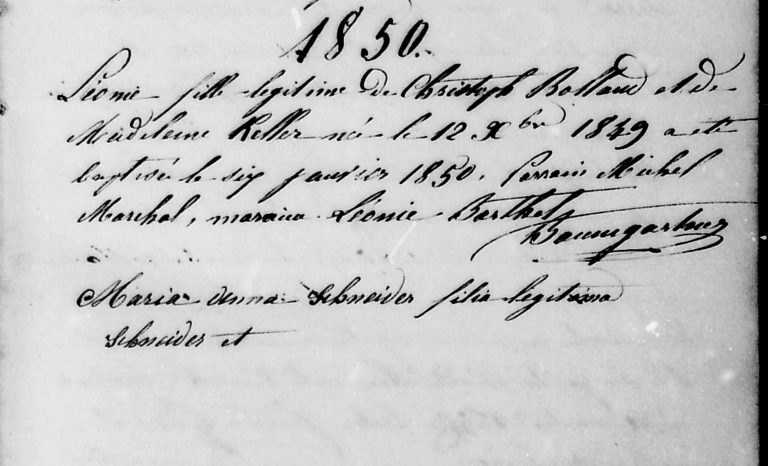 1850.
Léonie fille legitime de Christoph Rolland et de
Madeleine Keller née le 12 Xbre 1849 a eté
baptisée le six janvier 1850. Parrain Michel
Marchal, maraine Léonie Barthel
Baumgartner
Maria Anna Schneider filia legitima
Schneider et